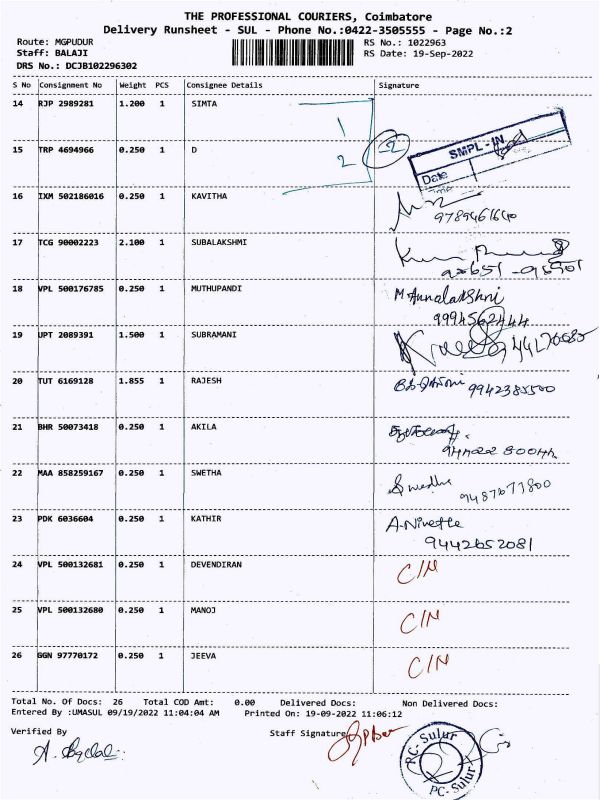 THE PROFESSIONAL COURIERS, Coimbatore
Delivery Runsheet - SUL - Phone No.:0422-3505555 - Page No.:2
Route: MGPUDUR
RS No.: 1022963
Staff: BALAJI
RS Date: 19-Sep-2022
DRS No.: DCJB102296302
S No Consignment No Weight PCS Consignee Details Signature
14 RJP 2989281 1.200 1 SIMTA
1
15 TRP 4694966 0.250 1 D
2
2
SMPL - IN
Date
16 IXM 502186016 0.250 1 KAVITHA
9789461640
17 TCG 90002223 2.100 1 SUBALAKSHMI
18 VPL 500176785 0.250 1 MUTHUPANDI M Annalakshmi
9994562444
19 UPT 2089391 1.500 1 SUBRAMANI
20 TUT 6169128 1.855 1 RAJESH 9942385500
21 BHR 50073418 0.250 1 AKILA
22 MAA 858259167 0.250 1 SWETHA Swedha
9487673800
23 PDK 6036604 0.250 1 KATHIR A.Nivetha
9442652081
24 VPL 500132681 0.250 1 DEVENDIRAN C/N
25 VPL 500132680 0.250 1 MANOJ C/N
26 GGN 97770172 0.250 1 JEEVA C/N
Total No. Of Docs: 26 Total COD Amt: 0.00 Delivered Docs: Non Delivered Docs:
Entered By :UMASUL 09/19/2022 11:04:04 AM Printed On: 19-09-2022 11:06:12
Verified By
Staff Signature
PC-Sulur
PC-Sulur